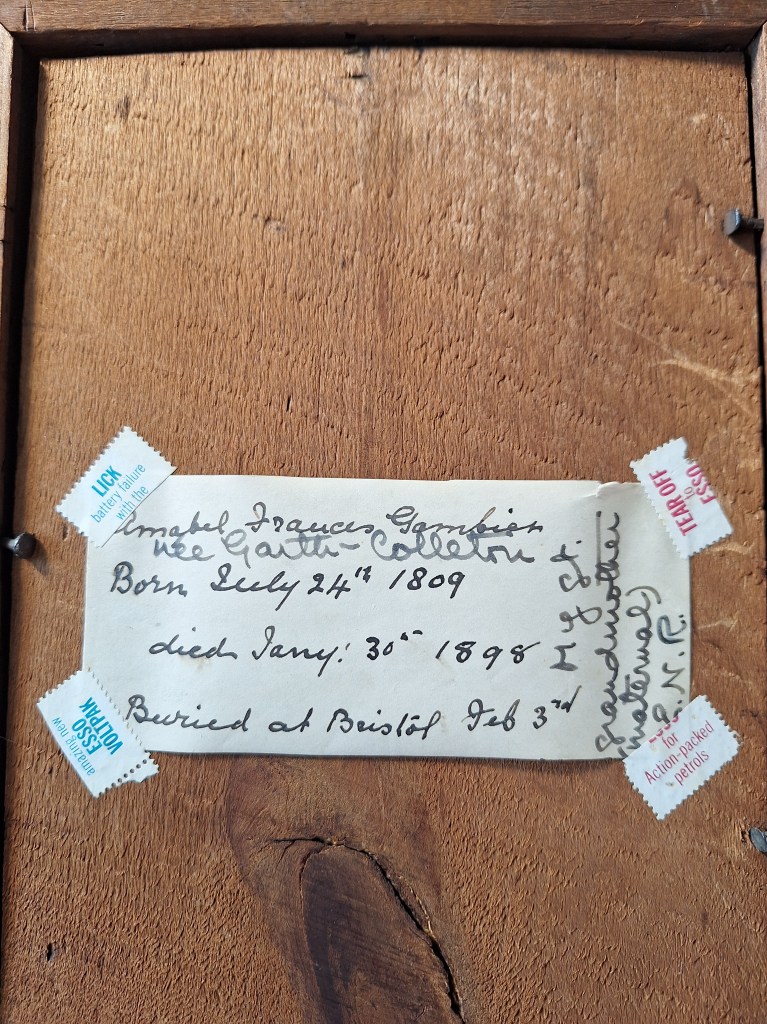 LICK
battery failure
with the
TEAR OFF
to
ESSO
Annabel Frances Gambier
née Garth-Colleton
Born July 24th 1809
died Jany: 30th 1898
Buried at Bristol Feb 3rd
My Gt.
Grandmother
(maternal)
N. R.
amazing new
ESSO
VOLTPAK
for
Action-packed
petrols